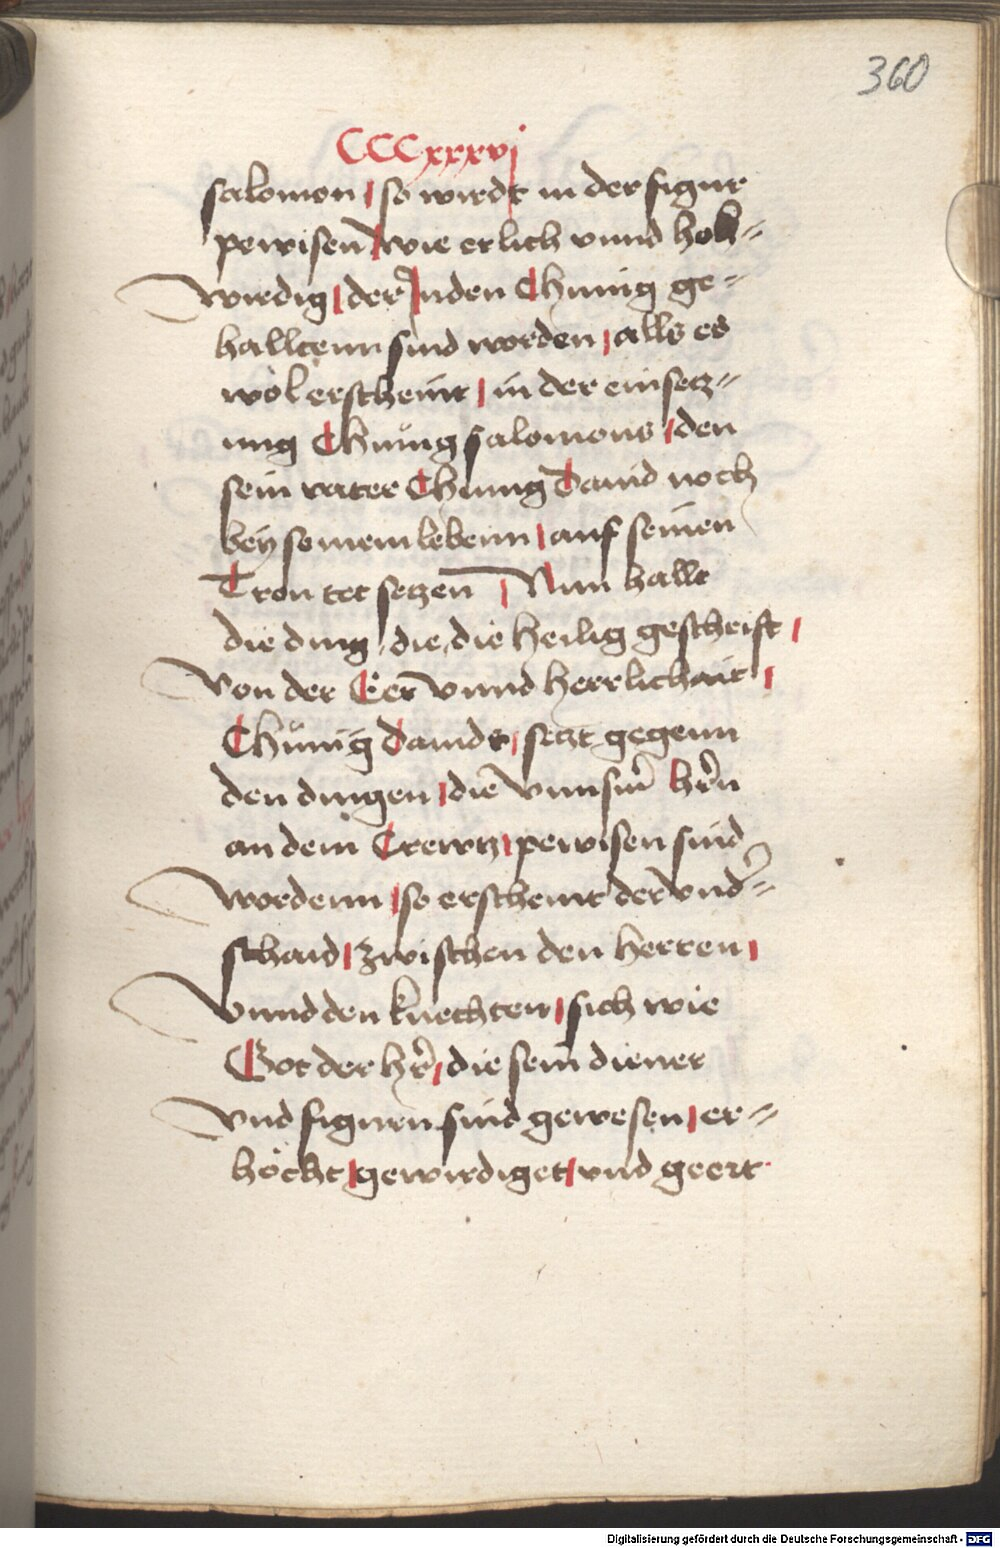 360
CCCxxxvj
salomon | so wirdt in der figur
pewisen | wie erlich vnnd hoh=
wirdig | der Juden Chunig ge=
halltenn sind worden | alls es
wol erscheint | in der einsetz=
ung Chunig salomons | den
sein vater Chunig Dauid noch
bey seinem lebenn | auf seinen
Tron tet setzen | Nun hallt
die ding die, die heilig geschrift |
von der Eer vnnd herrlichait |
Chunig Dauidt | setzt gegenn
den dingen | die vnnsm̄ hrn̄
an dem Crewtz | pewisen sind
wordenn | so erscheint der vnd=
schaid | zwischen den herren |
vnnd den knechten | sich wie
Got der hr̄ | die sein diener
vnd figuren sind gewesen | er=
höcht | gewirdiget | vnd geert
Digitalisierung gefördert durch die Deutsche Forschungsgemeinschaft - DFG